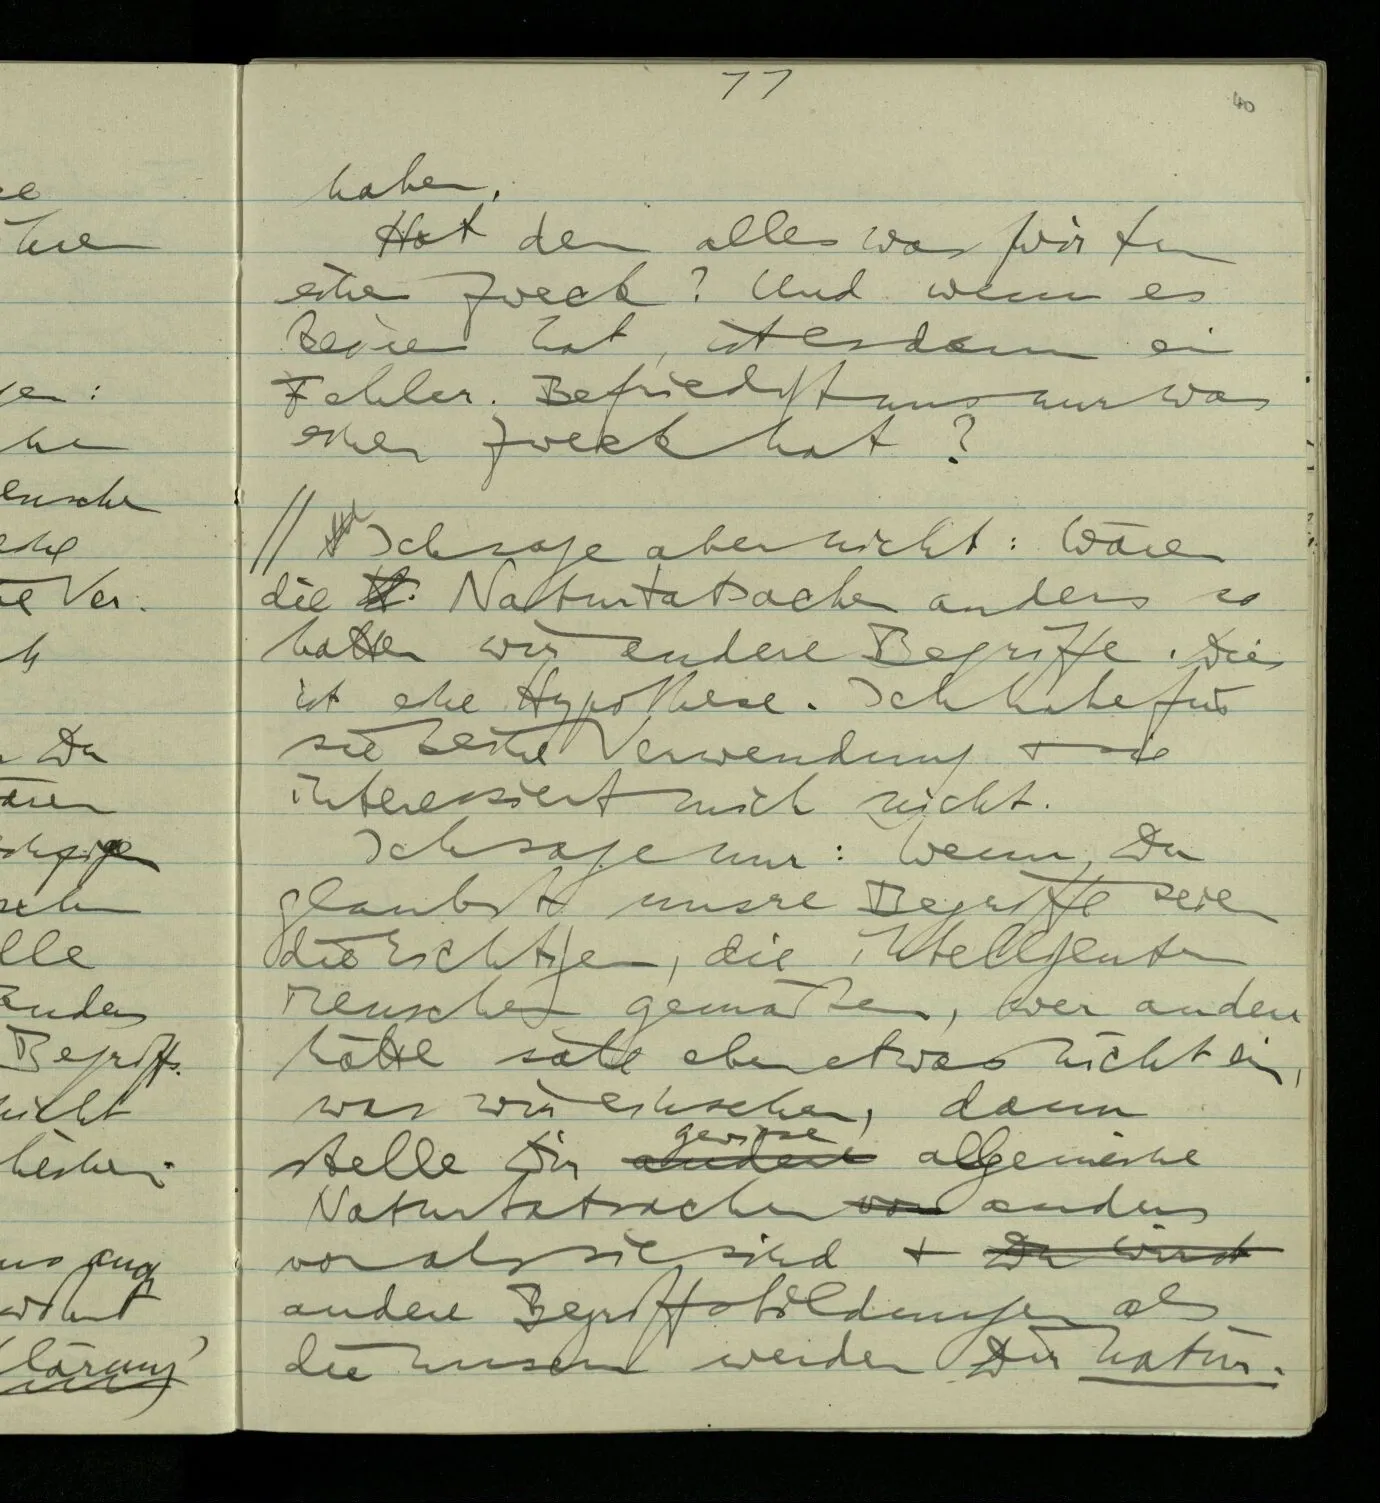 77
40
haben.
Hat den alles was wir tun
einen Zweck? Und wenn es
keinen hat, ist es dann ein
Fehler. Befriedigt uns nur was
einen Zweck hat?
// Ich sage aber nicht: Wären
die Naturtatsachen anders so
hätten wir andere Begriffe. Dies
ist eine Hypothese. Ich habe für
sie keine Verwendung + sie
interessiert mich nicht.
Ich sage nur: Wenn Du
glaubst unsre Begriffe seien
die richtigen, die intelligenten
Menschen gemäßen, wer andere
hätte sähe eben etwas nicht ein,
was wir einsehen, dann
gewisse
stelle Dir andere allgemeine
Naturtatsachen vor anders
vor als sie sind + Du wirst
andere Begriffsbildungen als
die unsern werden Dir natür-
Du
Ver-
elle
anders
Begriffs-
nicht
klärung